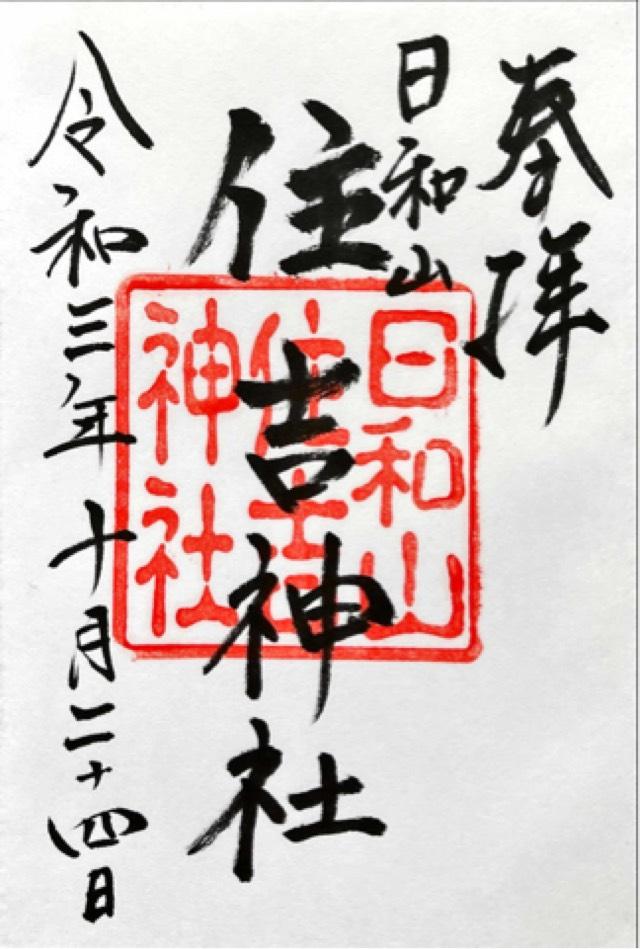 奉拝
日和山
住吉神社
日和山
住吉
神社
令和三年十月二十四日